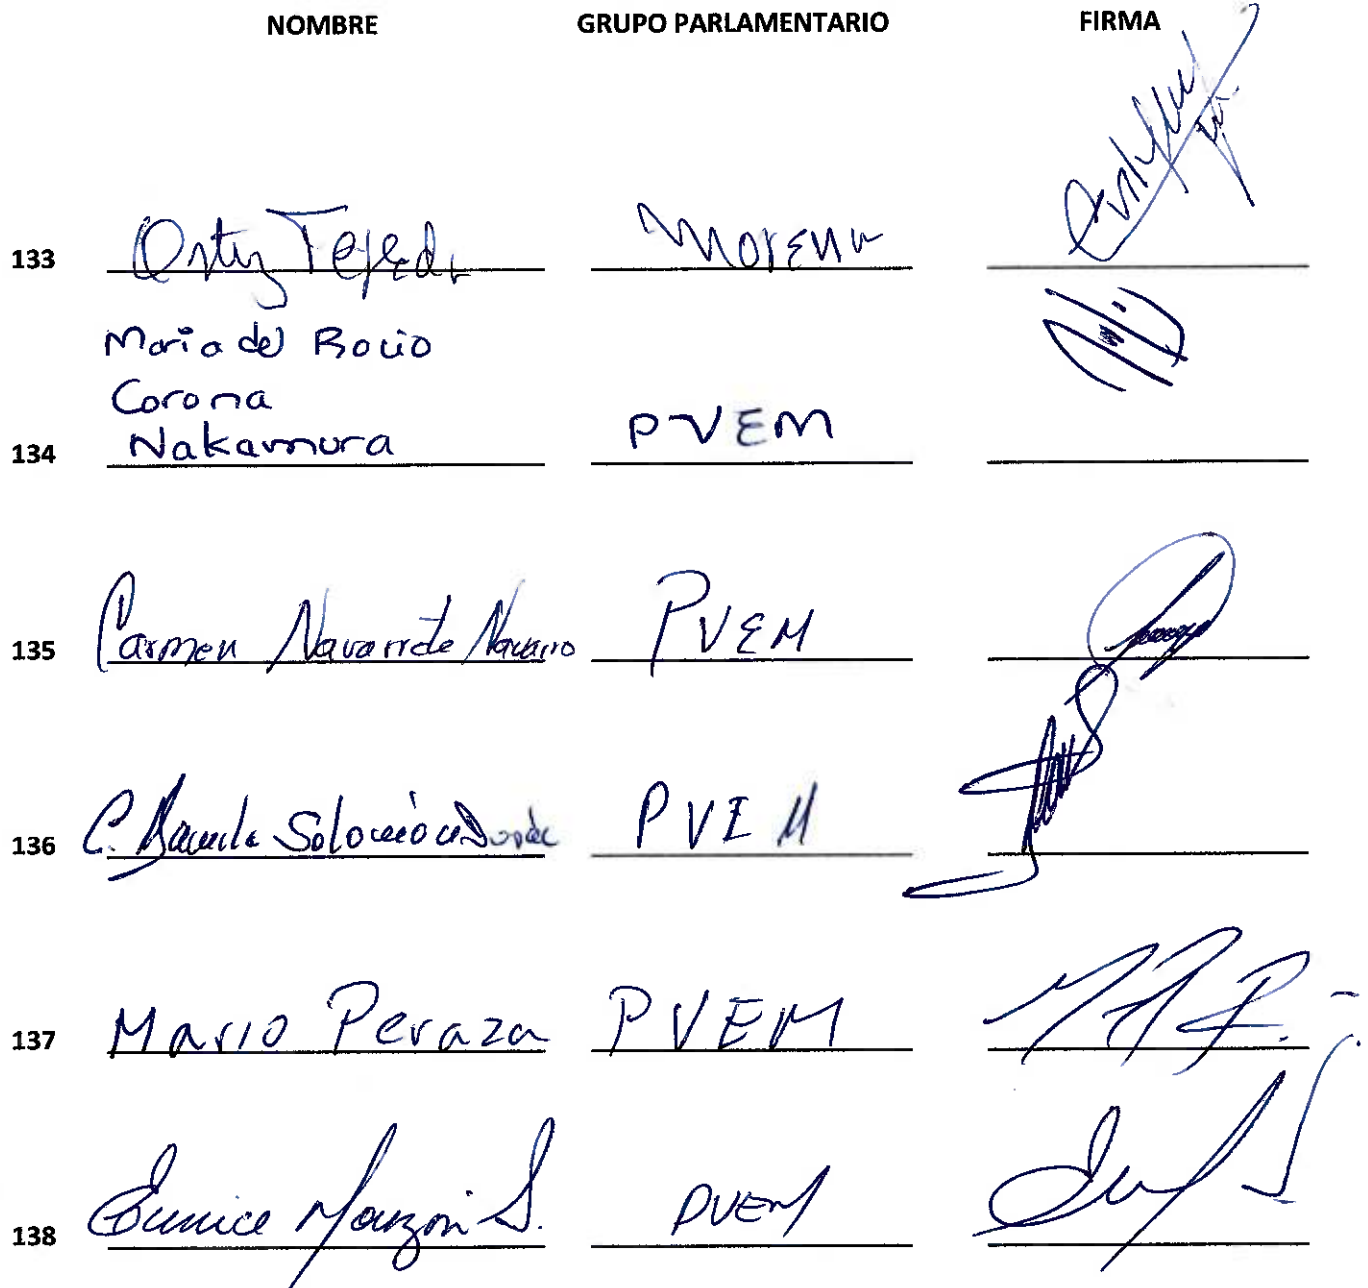 NOMBRE GRUPO PARLAMENTARIO FIRMA
133 Ortiz Tejeda Morena
Maria del Rocio
Corona
134 Nakamura PVEM
135 Carmen Navarrete Navarro PVEM
136 C. PVEM
137 Mario Peraza PVEM
138 Eunice Monzon S. PVEM